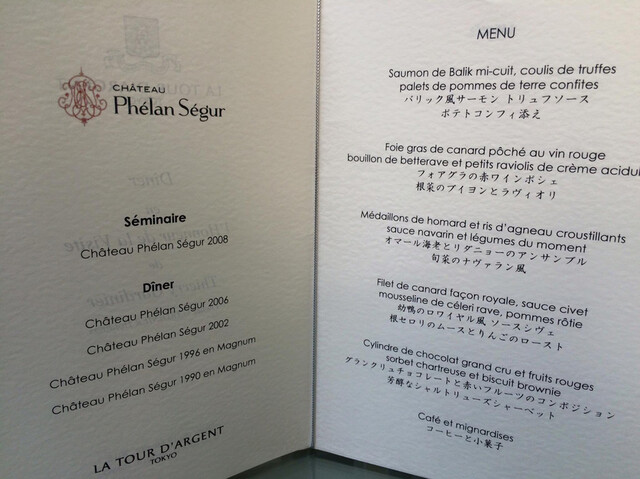 CHÂTEAU
Phélan Ségur
Séminaire
Château Phélan Ségur 2008
Dîner
Château Phélan Ségur 2006
Château Phélan Ségur 2002
Château Phélan Ségur 1996 en Magnum
Château Phélan Ségur 1990 en Magnum
LA TOUR D'ARGENT
TOKYO
MENU
Saumon de Balik mi-cuit, coulis de truffes
palets de pommes de terre confites
バリック風サーモン トリュフソース
ポテトコンフィ添え
Foie gras de canard pôché au vin rouge
bouillon de betterave et petits raviolis de crème acidul
フォアグラの赤ワインポシェ
根菜のブイヨンとラヴィオリ
Médaillons de homard et ris d'agneau croustillants
sauce navarin et légumes du moment
オマール海老とリダニョーのアンサンブル
旬菜のナヴァラン風
Filet de canard façon royale, sauce civet
mousseline de céleri rave, pommes rôtie
幼鴨のロワイヤル風 ソースシヴェ
根セロリのムースとりんごのロースト
Cylindre de chocolat grand cru et fruits rouges
sorbet chartreuse et biscuit brownie
グランクリュチョコレートと赤いフルーツのコンポジション
芳醇なシャルトリューズシャーベット
Café et mignardises
コーヒーと小菓子